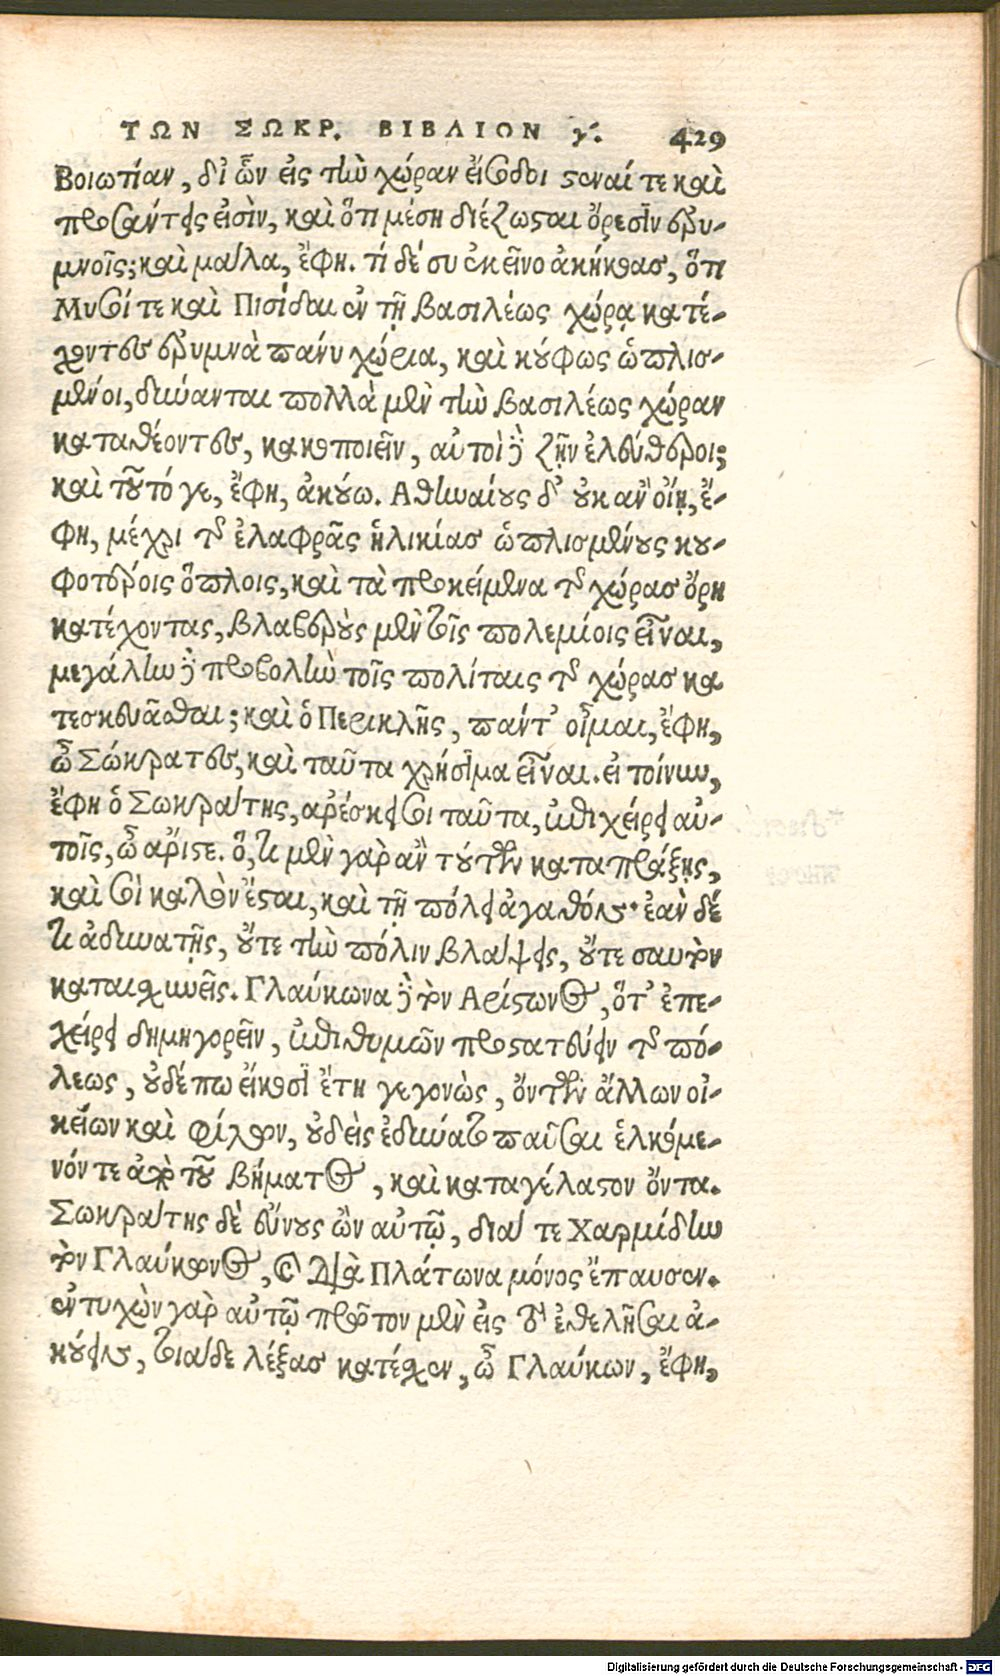 ΤΩΝ ΣΩΚΡ. ΒΙΒΛΙΟΝ γ'. 429
Βοιωτίαν, δι' ὧν εἰς τὴν χώραν εἴσοδοι στεναί τε καὶ
προσάντεις εἰσὶν, καὶ ὅτι μέση διέζωσται ὄρεσιν ἐρυ-
μνοῖς; καὶ μάλα, ἔφη. τί δέ συ ἐκεῖνο ἀκήκοας, ὅτι
Μυσοί τε καὶ Πισίδαι ἐν τῇ βασιλέως χώρᾳ κατέ-
χοντες ἐρυμνὰ πάνυ χώρια, καὶ κούφως ὡπλισ-
μένοι, δύνανται πολλὰ μὲν τὴν βασιλέως χώραν
καταθέοντες, κακοποιεῖν, αὐτοὶ δὲ ζῇν ἐλεύθεροι;
καὶ τοῦτό γε, ἔφη, ἀκούω. Αθηναίους δ' οὐκ ἂν οἴῃ, ἔ-
φη, μέχρι τῆς ἐλαφρᾶς ἡλικίας ὡπλισμένους κου-
φοτέροις ὅπλοις, καὶ τὰ προκείμενα τῆς χώρας ὄρη
κατέχοντας, βλαβεροὺς μὲν τοῖς πολεμίοις εἶναι,
μεγάλην δὲ προβολὴν τοῖς πολίταις τῆς χώρας κα
τεσκευᾶσθαι; καὶ ὁ Περικλῆς, πάντ' οἶμαι, ἔφη,
ὦ Σώκρατες, καὶ ταῦτα χρήσιμα εἶναι. εἰ τοίνυν,
ἔφη ὁ Σωκράτης, ἀρέσκει σοι ταῦτα, ἐπιχείρει αὐ-
τοῖς, ὦ ἄριστε. ὅ, τι μὲν γὰρ ἂν τούτων καταπράξῃς,
καὶ σοὶ καλὸν ἔσται, καὶ τῇ πόλει ἀγαθόν· ἐὰν δέ
τι ἀδυνατῇς, οὔτε τὴν πόλιν βλάψεις, οὔτε σαυτὸν
καταισχυνεῖς. Γλαύκωνα δὲ τὸν Αρίστωνος, ὅτ' ἐπε-
χείρει δημηγορεῖν, ἐπιθυμῶν προστατεύειν τῆς πό-
λεως, οὐδέπω εἴκοσιν ἔτη γεγονὼς, ὄντων ἄλλων οἰ-
κείων καὶ φίλων, οὐδεὶς ἐδύνατο παῦσαι ἑλκόμε-
νόν τε ἀπὸ τοῦ βήματος, καὶ καταγέλαστον ὄντα.
Σωκράτης δὲ εὔνους ὢν αὐτῷ, διά τε Χαρμίδην
τὸν Γλαύκωνος, καὶ διὰ Πλάτωνα μόνος ἔπαυσεν.
ἐντυχὼν γὰρ αὐτῷ πρῶτον μὲν εἰς τὸ ἐθελῆσαι ἀ-
κούειν, τοιάδε λέξας κατέσχεν, ὦ Γλαύκων, ἔφη,
Digitalisierung gefördert durch die Deutsche Forschungsgemeinschaft - DFG